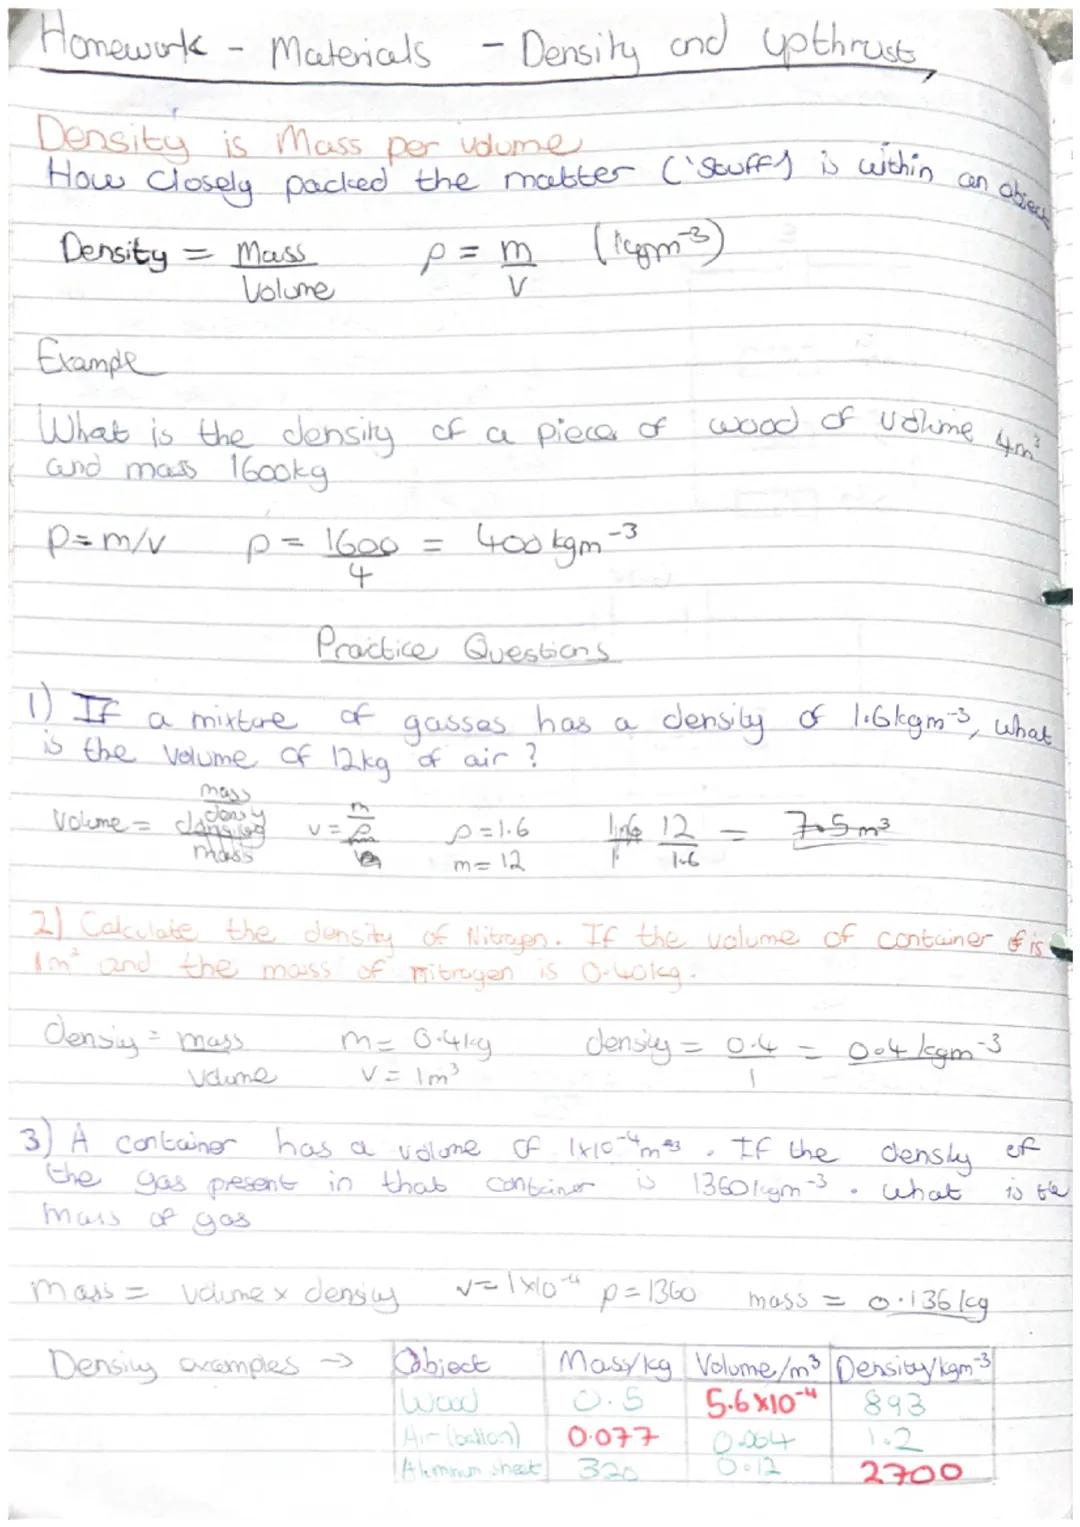 Homework - Materials - Density and upthrusts
Density is Mass per volume
How closely packed the matter ('stuff') is within an object
Density = Mass / Volume    ρ = m/v    (kgm⁻³)
Example
What is the density of a piece of wood of volume 4m³
and mass 1600kg
ρ = m/v    ρ = 1600/4 = 400kgm⁻³
Practice Questions
1) If a mixture of gasses has a density of 1.6kgm⁻³, what
is the volume of 12kg of air?
Volume = mass/density    v = m/ρ    ρ=1.6    m=12    12/1.6 = 7.5m³
2) Calculate the density of Nitrogen. If the volume of container is
1m³ and the mass of nitrogen is 0.40kg.
density = mass/volume    m = 0.4kg    v = 1m³    density = 0.4/1 = 0.4kgm⁻³
3) A container has a volume of 1x10⁻⁴m³. If the density of
the gas present in that container is 1360kgm⁻³. what is the
mass of gas
mass = volume x density    v=1x10⁻⁴    ρ=1360    mass = 0.136kg
Density examples → Object    Mass/kg    Volume/m³    Density/kgm⁻³
Wood    0.5    5.6x10⁻⁴    893
Air (ballon)    0.077    0.064    1.2
Aluminum sheet    320    0.12    2700